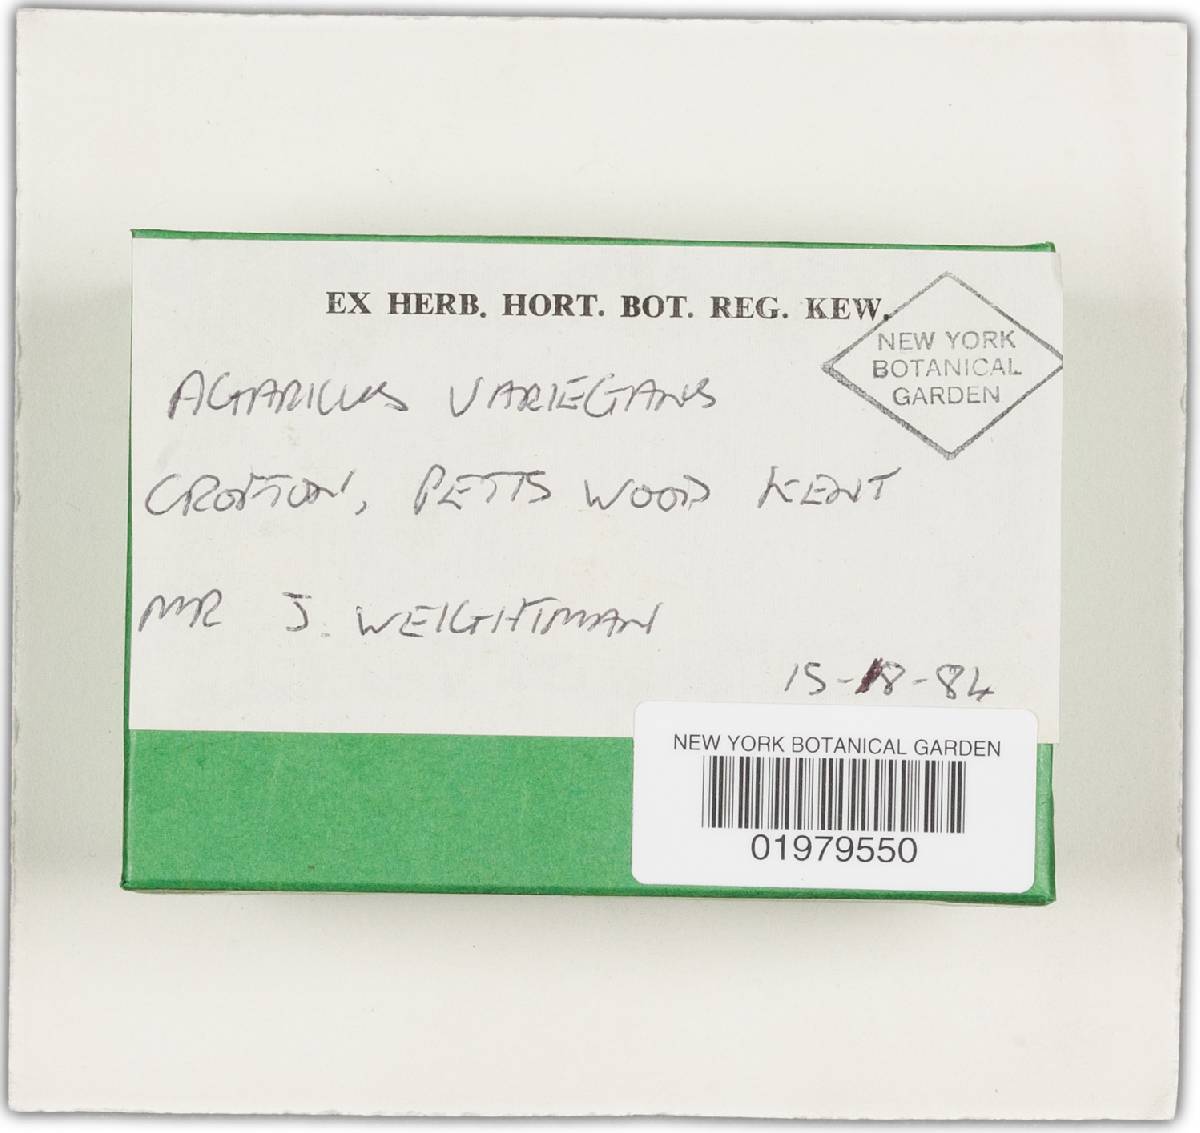 EX HERB. HORT. BOT. REG. KEW.
NEW YORK
BOTANICAL
GARDEN
AGARICUS VARIEGANS
CROFTON, PETTS WOOD KENT
MR J. WEIGHTMAN
15-8-84
NEW YORK BOTANICAL GARDEN
01979550